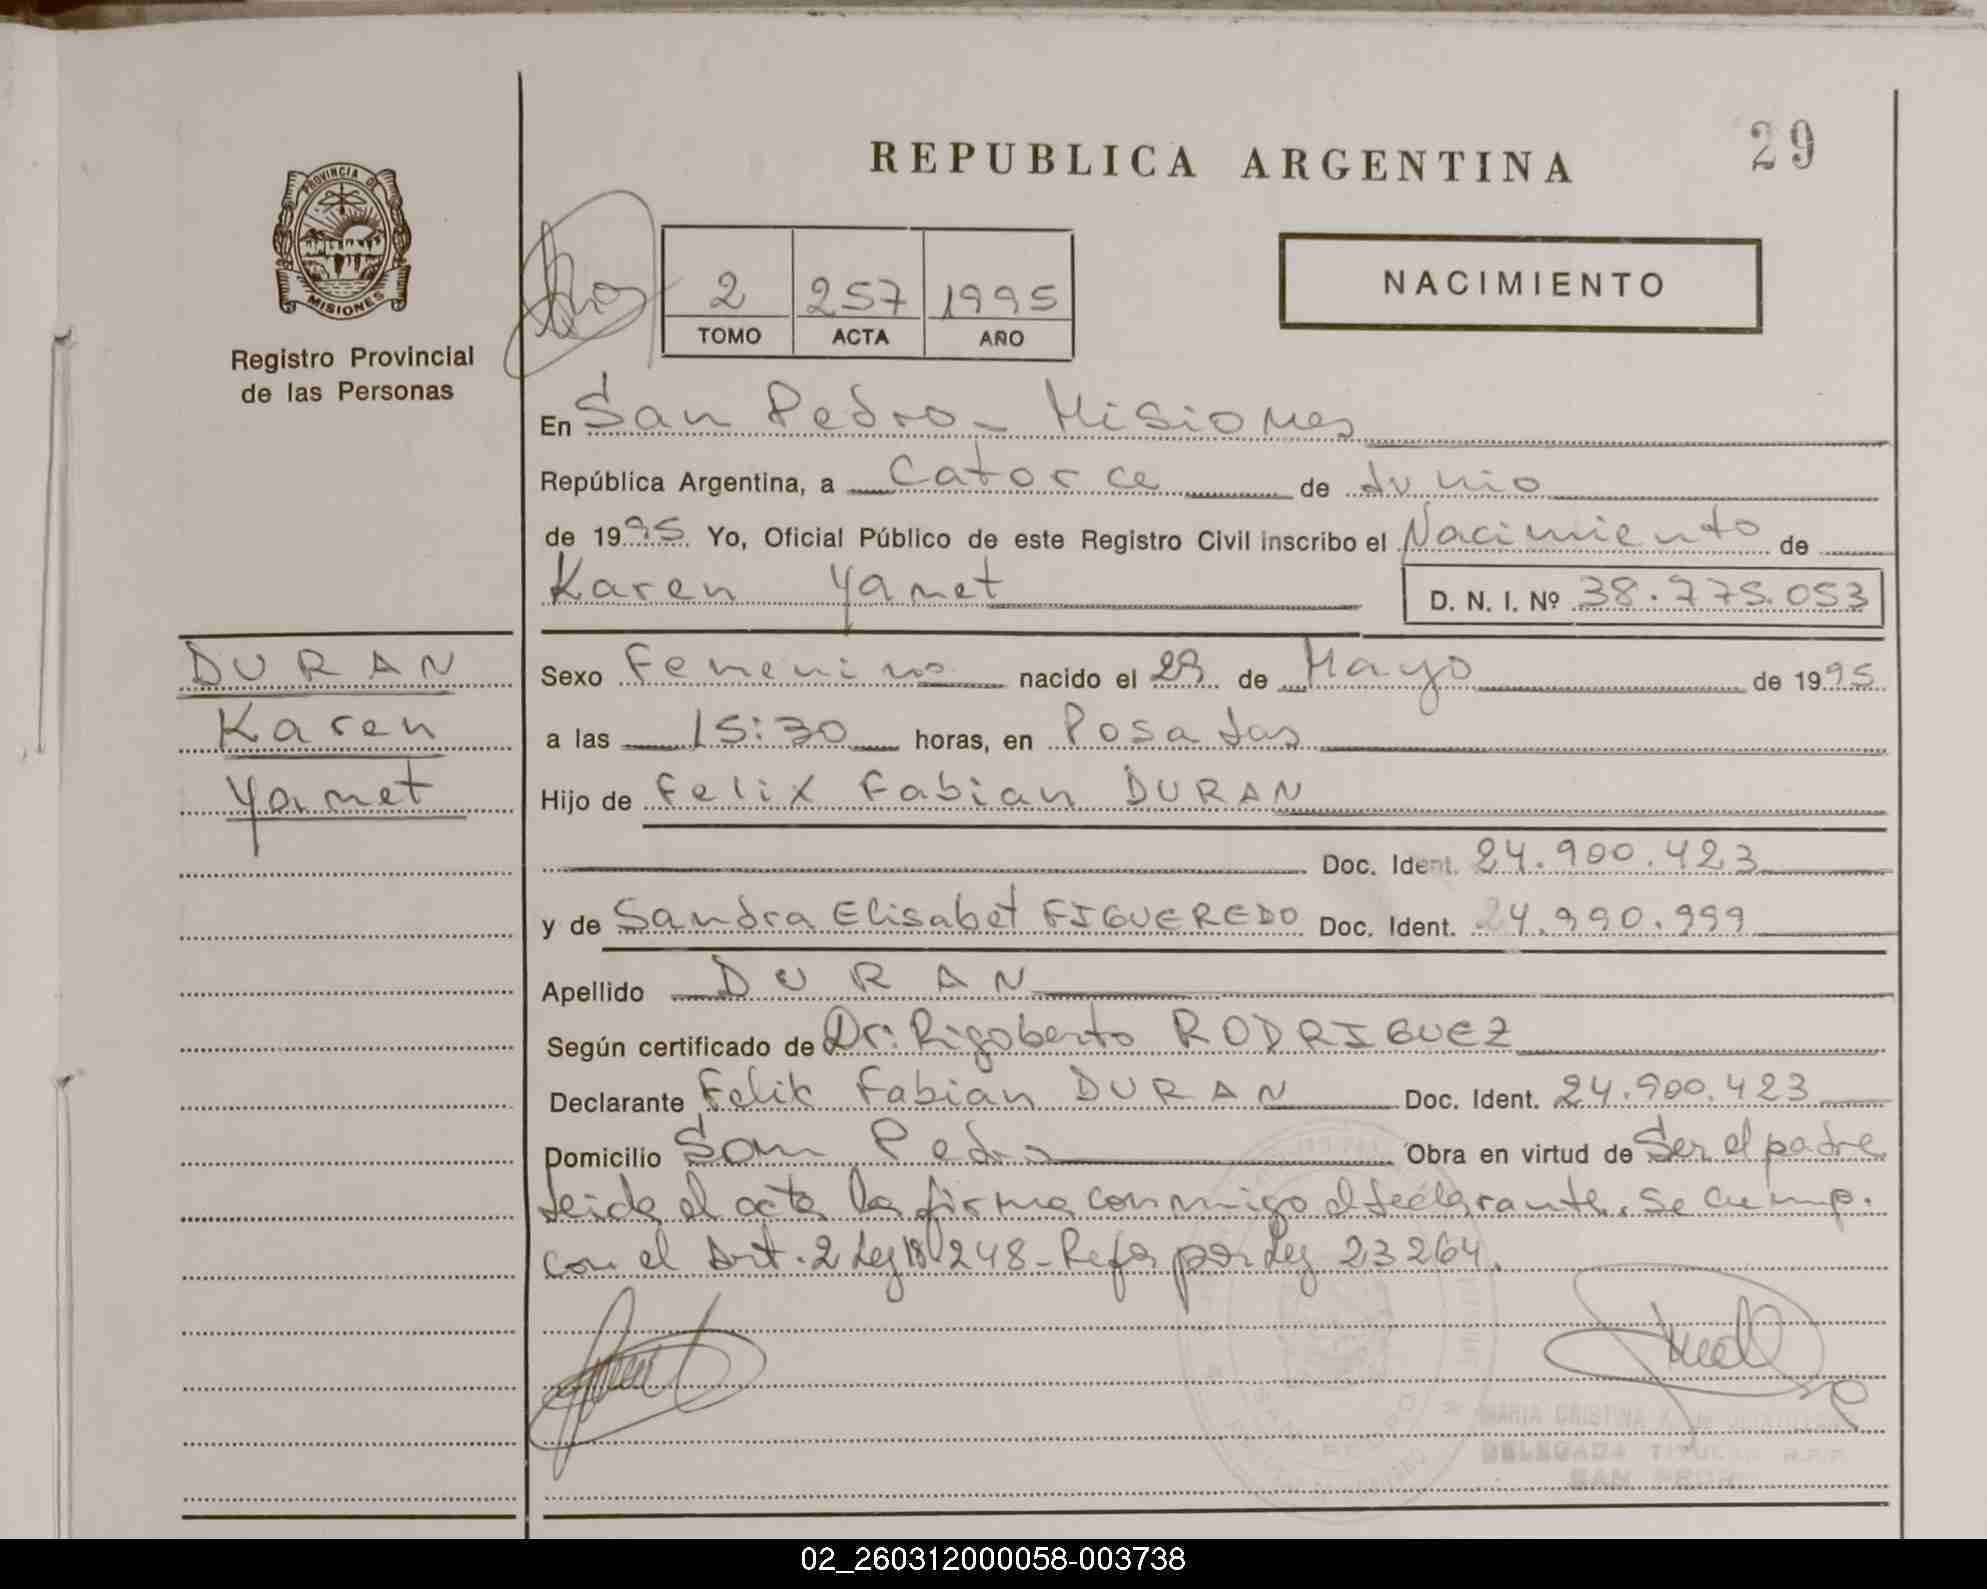 REPUBLICA ARGENTINA
29
PROVINCIA DE
MISIONES
Registro Provincial
de las Personas
2 257 1995
TOMO ACTA AÑO
NACIMIENTO
En San Pedro - Misiones
República Argentina, a Catorce de Junio
de 1995 Yo, Oficial Público de este Registro Civil inscribo el Nacimiento de
Karen Yamet D. N. I. Nº 38.775.053
DURAN
Karen
Yamet
Sexo Femenino nacido el 29 de Mayo de 1995
a las 15:30 horas, en Posadas
Hijo de Felix Fabian DURAN
Doc. Ident. 24.900.423
y de Sandra Elisabet FIGUEREDO Doc. Ident. 24.990.999
Apellido DURAN
Según certificado de Dr: Rigoberto RODRIGUEZ
Declarante Felix Fabian DURAN Doc. Ident. 24.900.423
Domicilio San Pedro Obra en virtud de Ser el padre
Leida el acta la firma conmigo el declarante. Se cump.
con el Art. 2 Ley 18248 - Refa por Ley 23264.
MARIA CRISTINA
DELEGADA TITULAR R.P.P.
SAN PEDRO
02_260312000058-003738